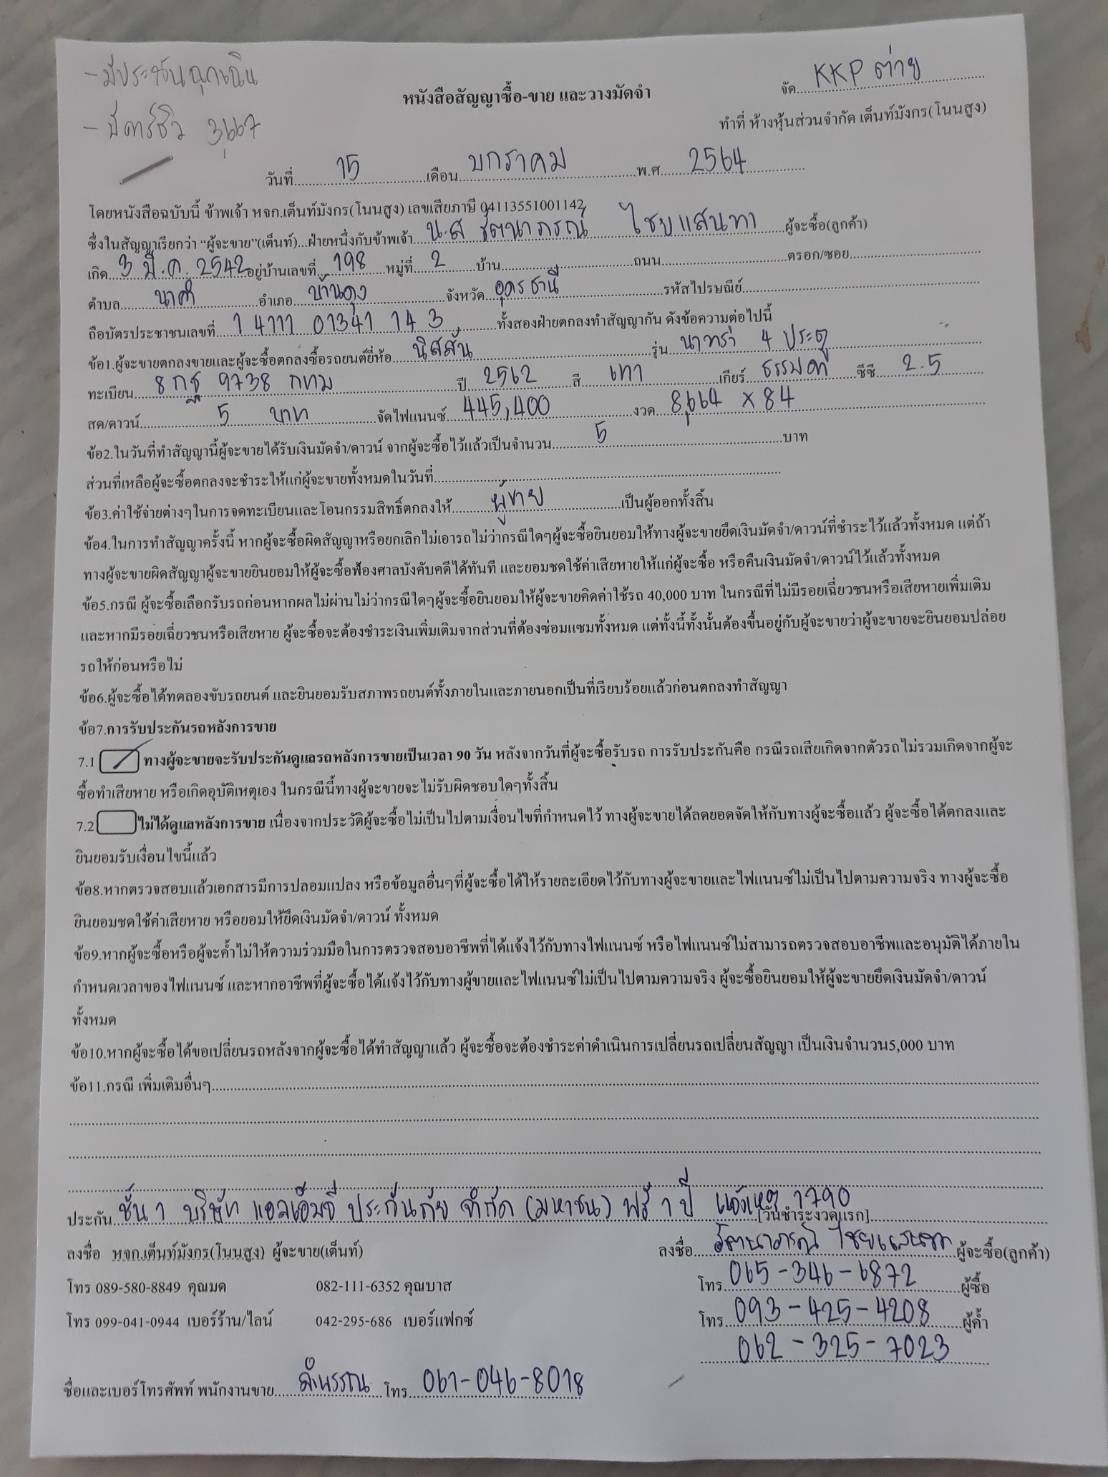 - มีประกันฉุกเฉิน
- มีการ์ชิว 3,667
จัด KKP ต่าย
หนังสือสัญญาซื้อ-ขาย และวางมัดจำ
ทำที่ ห้างหุ้นส่วนจำกัด เต็นท์มังกร(โนนสูง)
วันที่ 15 เดือน มกราคม พ.ศ. 2564
โดยหนังสือฉบับนี้ ข้าพเจ้า หจก.เต็นท์มังกร(โนนสูง) เลขเสียภาษี 04113551001142
ซึ่งในสัญญาเรียกว่า "ผู้จะขาย"(เต็นท์)...ฝ่ายหนึ่งกับข้าพเจ้า น.ส รัตนาภรณ์ ไชยแสนทา ผู้จะซื้อ(ลูกค้า)
เกิด 3 มี.ค. 2542 อยู่บ้านเลขที่ 198 หมู่ที่ 2 บ้าน ถนน ตรอก/ซอย
ตำบล นาคำ อำเภอ บ้านดุง จังหวัด อุดรธานี รหัสไปรษณีย์
ถือบัตรประชาชนเลขที่ 1 4111 01341 14 3 ทั้งสองฝ่ายตกลงทำสัญญากัน ดังข้อความต่อไปนี้
ข้อ1.ผู้จะขายตกลงขายและผู้จะซื้อตกลงซื้อรถยนต์ยี่ห้อ นิสสัน รุ่น นาวาร่า 4 ประตู
ทะเบียน 8 กฐ 9738 กทม ปี 2562 สี เทา เกียร์ ธรรมดา ซีซี 2.5
สด/ดาวน์ 5 บาท จัดไฟแนนซ์ 445,400 งวด 8,664 x 84
ข้อ2.ในวันที่ทำสัญญานี้ผู้จะขายได้รับเงินมัดจำ/ดาวน์ จากผู้จะซื้อไว้แล้วเป็นจำนวน 5 บาท
ส่วนที่เหลือผู้จะซื้อตกลงจะชำระให้แก่ผู้จะขายทั้งหมดในวันที่
ข้อ3.ค่าใช้จ่ายต่างๆในการจดทะเบียนและโอนกรรมสิทธิ์ตกลงให้ ผู้ขาย เป็นผู้ออกทั้งสิ้น
ข้อ4.ในการทำสัญญาครั้งนี้ หากผู้จะซื้อผิดสัญญาหรือยกเลิกไม่เอารถไม่ว่ากรณีใดๆผู้จะซื้อยินยอมให้ทางผู้จะขายยึดเงินมัดจำ/ดาวน์ที่ชำระไว้แล้วทั้งหมด แต่ถ้า
ทางผู้จะขายผิดสัญญาผู้จะขายยินยอมให้ผู้จะซื้อฟ้องศาลบังคับคดีได้ทันที และยอมชดใช้ค่าเสียหายให้แก่ผู้จะซื้อ หรือคืนเงินมัดจำ/ดาวน์ไว้แล้วทั้งหมด
ข้อ5.กรณี ผู้จะซื้อเลือกรับรถก่อนหากผลไม่ผ่านไม่ว่ากรณีใดๆผู้จะซื้อยินยอมให้ผู้จะขายคิดค่าใช้รถ 40,000 บาท ในกรณีที่ไม่มีรอยเฉี่ยวชนหรือเสียหายเพิ่มเติม
และหากมีรอยเฉี่ยวชนหรือเสียหาย ผู้จะซื้อจะต้องชำระเงินเพิ่มเติมจากส่วนที่ต้องซ่อมแซมทั้งหมด แต่ทั้งนี้ทั้งนั้นต้องขึ้นอยู่กับผู้จะขายว่าผู้จะขายจะยินยอมปล่อย
รถให้ก่อนหรือไม่
ข้อ6.ผู้จะซื้อได้ทดลองขับรถยนต์ และยินยอมรับสภาพรถยนต์ทั้งภายในและภายนอกเป็นที่เรียบร้อยแล้วก่อนตกลงทำสัญญา
ข้อ7.การรับประกันรถหลังการขาย
7.1 ทางผู้จะขายจะรับประกันดูแลรถหลังการขายเป็นเวลา 90 วัน หลังจากวันที่ผู้จะซื้อรับรถ การรับประกันคือ กรณีรถเสียเกิดจากตัวรถ ไม่รวมเกิดจากผู้จะ
ซื้อทำเสียหาย หรือเกิดอุบัติเหตุเอง ในกรณีนี้ทางผู้จะขายจะไม่รับผิดชอบใดๆทั้งสิ้น
7.2 ไม่ได้ดูแลหลังการขาย เนื่องจากประวัติผู้จะซื้อไม่เป็นไปตามเงื่อนไขที่กำหนดไว้ ทางผู้จะขายได้ลดยอดจัดให้กับทางผู้จะซื้อแล้ว ผู้จะซื้อได้ตกลงและ
ยินยอมรับเงื่อนไขนี้แล้ว
ข้อ8.หากตรวจสอบแล้วเอกสารมีการปลอมแปลง หรือข้อมูลอื่นๆที่ผู้จะซื้อได้ให้รายละเอียดไว้กับทางผู้จะขายและไฟแนนซ์ไม่เป็นไปตามความจริง ทางผู้จะซื้อ
ยินยอมชดใช้ค่าเสียหาย หรือยอมให้ยึดเงินมัดจำ/ดาวน์ ทั้งหมด
ข้อ9.หากผู้จะซื้อหรือผู้จะค้ำไม่ให้ความร่วมมือในการตรวจสอบอาชีพที่ได้แจ้งไว้กับทางไฟแนนซ์ หรือไฟแนนซ์ไม่สามารถตรวจสอบอาชีพและอนุมัติได้ภายใน
กำหนดเวลาของไฟแนนซ์ และหากอาชีพที่ผู้จะซื้อได้แจ้งไว้กับทางผู้ขายและไฟแนนซ์ไม่เป็นไปตามความจริง ผู้จะซื้อยินยอมให้ผู้จะขายยึดเงินมัดจำ/ดาวน์
ทั้งหมด
ข้อ10.หากผู้จะซื้อได้ขอเปลี่ยนรถหลังจากผู้จะซื้อได้ทำสัญญาแล้ว ผู้จะซื้อจะต้องชำระค่าดำเนินการเปลี่ยนรถเปลี่ยนสัญญา เป็นเงินจำนวน5,000 บาท
ข้อ11.กรณี เพิ่มเติมอื่นๆ
ประกัน ชั้น 1 บริษัท แอลเอ็มจี ประกันภัย จำกัด (มหาชน) ฟรี 1 ปี แจ้งเหตุ 1790 [วันชำระงวดแรก]
ลงชื่อ หจก.เต็นท์มังกร(โนนสูง) ผู้จะขาย(เต็นท์) ลงชื่อ รัตนาภรณ์ ไชยแสนทา ผู้จะซื้อ(ลูกค้า)
โทร 089-580-8849 คุณมด 082-111-6352 คุณบาส โทร 065-346-6872 ผู้ซื้อ
โทร 099-041-0944 เบอร์ร้าน/ไลน์ 042-295-686 เบอร์แฟกซ์ โทร 093-425-4208 ผู้ค้ำ
062-325-7023
ชื่อและเบอร์โทรศัพท์ พนักงานขาย ลำพรรณ โทร 061-046-8018